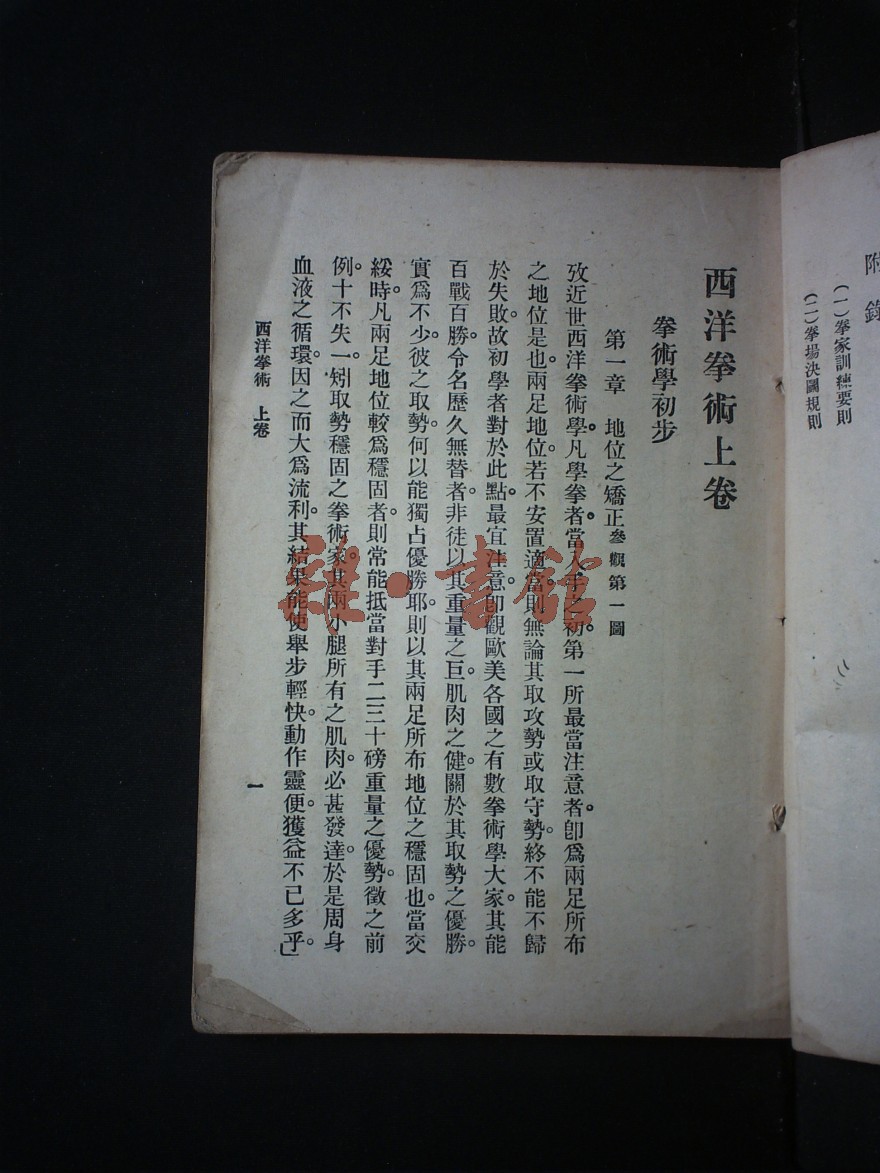 附錄
(一)拳家訓練要則
(二)拳場決鬭規則
西洋拳術上卷
拳術學初步
第一章　地位之矯正參觀第一圖
攷近世西洋拳術學。凡學拳者。當入手之初。第一所最當注意者。卽爲兩足所布
之地位是也。兩足地位。若不安置適當。則無論其取攻勢或取守勢。終不能不歸
於失敗。故初學者對於此點。最宜注意。卽觀歐美各國之有數拳術學大家。其能
百戰百勝。令名歷久無替者。非徒以其重量之巨。肌肉之健。關於其取勢之優勝。
實爲不少。彼之取勢。何以能獨占優勝耶。則以其兩足所布地位之穩固也。當交
綏時。凡兩足地位較爲穩固者。則常能抵當對手二三十磅重量之優勢。徵之前
例。十不失一。矧取勢穩固之拳術家。其兩小腿所有之肌肉。必甚發達。於是周身
血液之循環。因之而大爲流利。其結果能使舉步輕快。動作靈便。獲益不已多乎。」
西洋拳術　上卷
一
雜·書館